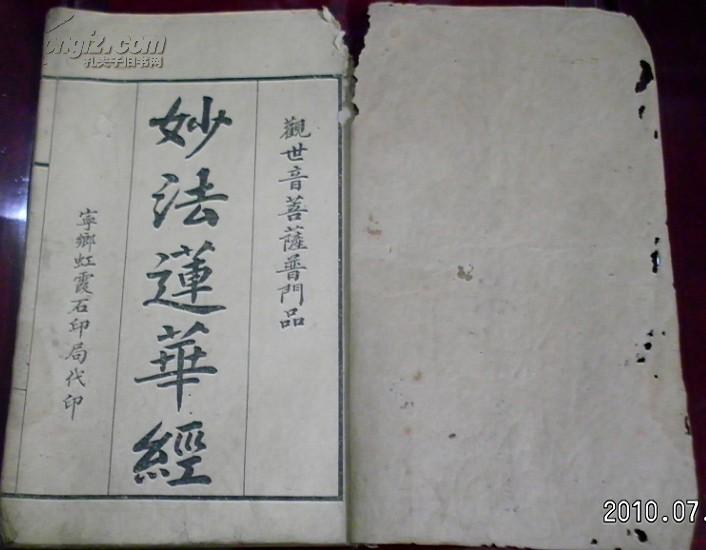 觀世音菩薩普門品
妙法蓮華經
寧鄉虹霞石印局代印
孔夫子旧书网
2010.07.